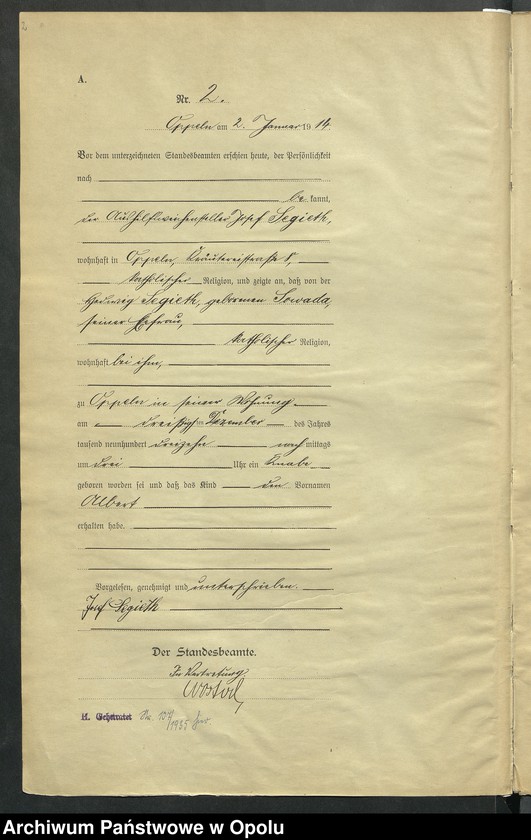 2
A.
Nr. 2.
Oppeln am 2. Januar 19 14
Vor dem unterzeichneten Standesbeamten erschien heute, der Persönlichkeit
nach
be kannt,
der Aushilfsweichensteller Josef Segieth,
wohnhaft in Oppeln, 
katholischer Religion, und zeigte an, daß von der
Hedwig Segieth, geborenen Sowada,
seiner Ehefrau,
katholischer Religion,
wohnhaft bei ihm,
zu Oppeln in seiner Wohnung
am dreißigsten Dezember des Jahres
tausend neunhundert dreizehn nach mittags
um drei Uhr ein Knabe
geboren worden sei und daß das Kind den Vornamen
Albert
erhalten habe.
Vorgelesen, genehmigt und unterschrieben.
Josef Segieth
Der Standesbeamte.
In Vertretung
H. Geheiratet Nr. /1935
Archiwum Państwowe w Opolu